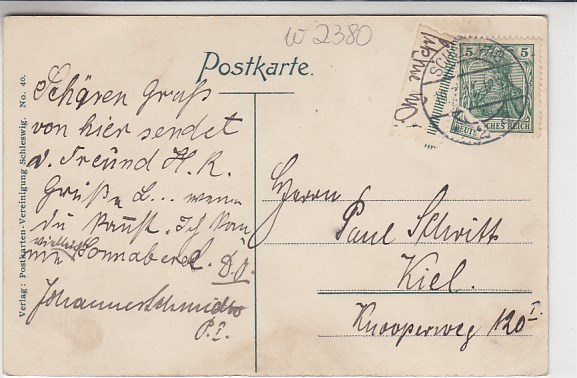 W 2380
Postkarte.
5 5
DEUTSCHES REICH
Schönen Gruß
von hier sendet
d. Freund H. R.
Grüße L... wenn
du kannst. Ich kom
me vielleicht Sonnabend. D. O.
Johannes Schmidt
P. I.
Herrn
Paul Schmitt
Kiel.
Knooperweg 120 I.
Verlag: Postkarten-Vereinigung Schleswig. No. 40.